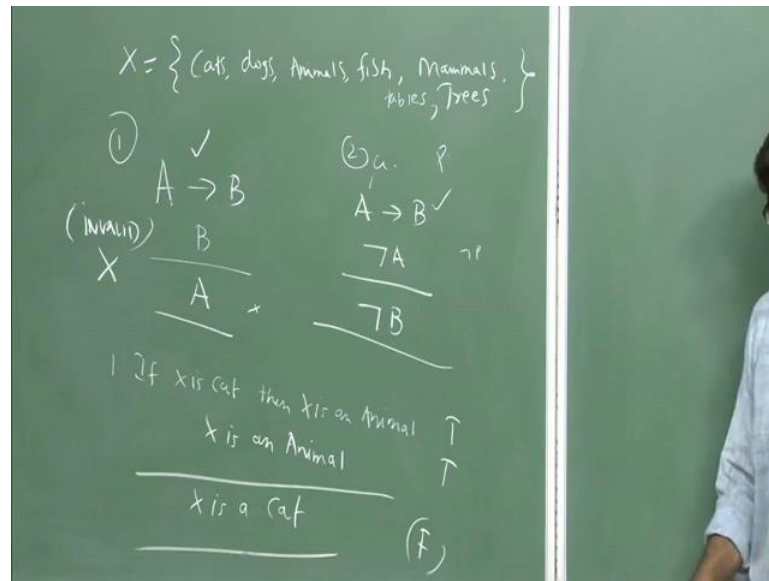 X = { Cats, dogs, Animals, fish, Mammals,
tables, Trees }
① ✓
A → B
(INVALID) B
X
A ×
② a. P
A → B ✓
¬A ¬P
¬B
1. If X is Cat then X is an Animal T
X is an Animal T
X is a Cat (F)